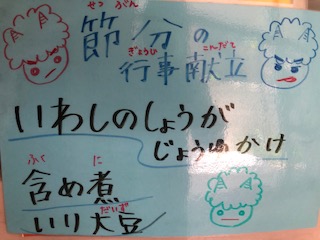 せつ ぶん
節分の
ぎょうじ こんだて
行事献立
いわしのしょうが
じょうゆかけ
ふく に
含め煮
だいず
いり大豆